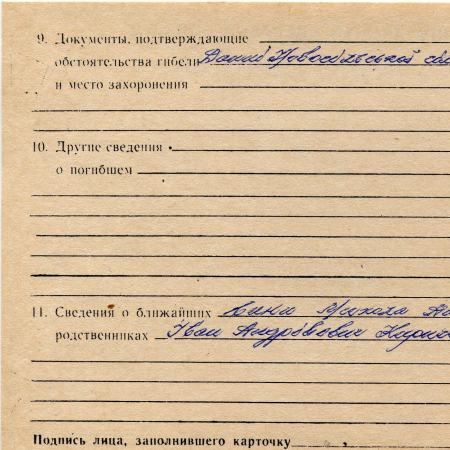 9. Документы, подтверждающие
обстоятельства гибели Данні Новосільської сіл
и место захоронения
10. Другие сведения
о погибшем
11. Сведения о ближайших сини Микола Ан
родственниках Іван Андрійович Кирич
Подпись лица, заполнившего карточку